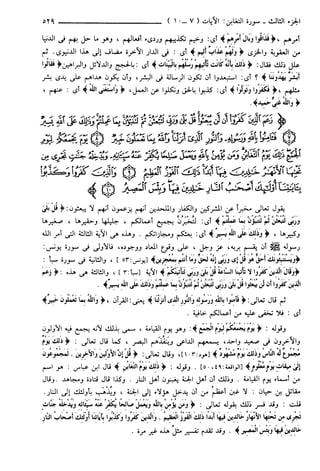 الجزء الثالث - سورة التغابن: الآيات (٧ - ١٠) ٥٢٩
أمرهم، ﴿فَذَاقُوا وَبَالَ أَمْرِهِمْ﴾ أي: وخيم تكذيبهم ورديء أفعالهم، وهو ما حل بهم في الدنيا
من العقوبة والخزي ﴿وَلَهُمْ عَذَابٌ أَلِيمٌ﴾ أي: في الدار الآخرة مضاف إلى هذا الدنيوي. ثم
علل ذلك فقال: ﴿ذَلِكَ بِأَنَّهُ كَانَت تَّأْتِيهِمْ رُسُلُهُم بِالْبَيِّنَاتِ﴾ أي: بالحجج والدلائل والبراهين ﴿فَقَالُوا
أَبَشَرٌ يَهْدُونَنَا﴾ ؟ أي: استبعدوا أن تكون الرسالة في البشر، وأن يكون هداهم على يدي بشر
مثلهم، ﴿فَكَفَرُوا وَتَوَلَّوا﴾ أي: كذبوا بالحق ونكلوا عن العمل، ﴿وَّاسْتَغْنَى اللَّهُ﴾ أي: عنهم،
﴿وَاللَّهُ غَنِيٌّ حَمِيدٌ﴾.
زَعَمَ الَّذِينَ كَفَرُوا أَن لَّن يُبْعَثُوا قُلْ بَلَى وَرَبِّي لَتُبْعَثُنَّ ثُمَّ لَتُنَبَّؤُنَّ بِمَا عَمِلْتُمْ وَذَلِكَ عَلَى اللَّهِ يَسِيرٌ
يقول تعالى مخبراً عن المشركين والكفار والملحدين أنهم يزعمون أنهم لا يبعثون: ﴿قُلْ بَلَى
وَرَبِّي لَتُبْعَثُنَّ ثُمَّ لَتُنَبَّؤُنَّ بِمَا عَمِلْتُمْ﴾ أي: لتُخبَرُنّ بجميع أعمالكم، جليلها وحقيرها، صغيرها
وكبيرها، ﴿وَذَلِكَ عَلَى اللَّهِ يَسِيرٌ﴾ أي: بعثكم ومجازاتكم. وهذه هي الآية الثالثة التي أمر الله
رسوله ﷺ أن يقسم بربه، عز وجل، على وقوع المعاد ووجوده، فالأولى في سورة يونس:
﴿وَيَسْتَنبِئُونَكَ أَحَقٌّ هُوَ قُلْ إِي وَرَبِّي إِنَّهُ لَحَقٌّ وَمَا أَنتُم بِمُعْجِزِينَ﴾ [يونس: ٥٣]، والثانية في سورة سبأ:
﴿وَقَالَ الَّذِينَ كَفَرُوا لَا تَأْتِينَا السَّاعَةُ قُلْ بَلَى وَرَبِّي لَتَأْتِيَنَّكُمْ﴾ الآية [سبأ: ٣]، والثالثة هي هذه: ﴿زَعَمَ
الَّذِينَ كَفَرُوا أَن لَّن يُبْعَثُوا قُلْ بَلَى وَرَبِّي لَتُبْعَثُنَّ ثُمَّ لَتُنَبَّؤُنَّ بِمَا عَمِلْتُمْ وَذَلِكَ عَلَى اللَّهِ يَسِيرٌ﴾.
ثم قال تعالى: ﴿فَآمِنُوا بِاللَّهِ وَرَسُولِهِ وَالنُّورِ الَّذِي أَنزَلْنَا﴾ يعني: القرآن، ﴿وَاللَّهُ بِمَا تَعْمَلُونَ خَبِيرٌ﴾
أي: فلا تخفى عليه من أعمالكم خافية.
وقوله: ﴿يَوْمَ يَجْمَعُكُمْ لِيَوْمِ الْجَمْعِ﴾: وهو يوم القيامة، سمي بذلك لأنه يجمع فيه الأولون
والآخرون في صعيد واحد، يسمعهم الداعي وينفُذهم البصر، كما قال تعالى: ﴿ذَلِكَ يَوْمٌ
مَّجْمُوعٌ لَّهُ النَّاسُ وَذَلِكَ يَوْمٌ مَّشْهُودٌ﴾ [هود: ١٠٣]، وقال تعالى: ﴿قُلْ إِنَّ الْأَوَّلِينَ وَالْآخِرِينَ. لَمَجْمُوعُونَ
إِلَى مِيقَاتِ يَوْمٍ مَّعْلُومٍ﴾ [الواقعة: ٤٩، ٥٠]. وقوله: ﴿ذَلِكَ يَوْمُ التَّغَابُنِ﴾ قال ابن عباس: هو اسم
من أسماء يوم القيامة. وذلك أن أهل الجنة يغبنون أهل النار. وكذا قال قتادة ومجاهد. وقال
مقاتل بن حيان: لا غبن أعظمُ من أن يدخل هؤلاء إلى الجنة، ويُذْهَب بأولئك إلى النار.
قلت: وقد فسر ذلك بقوله تعالى: ﴿وَمَن يُؤْمِن بِاللَّهِ وَيَعْمَلْ صَالِحًا يُكَفِّرْ عَنْهُ سَيِّئَاتِهِ وَيُدْخِلْهُ جَنَّاتٍ
تَجْرِي مِن تَحْتِهَا الْأَنْهَارُ خَالِدِينَ فِيهَا أَبَدًا ذَلِكَ الْفَوْزُ الْعَظِيمُ. وَالَّذِينَ كَفَرُوا وَكَذَّبُوا بِآيَاتِنَا أُولَئِكَ أَصْحَابُ النَّارِ
خَالِدِينَ فِيهَا وَبِئْسَ الْمَصِيرُ﴾. وقد تقدم تفسير مثلُ هذه غير مرة.